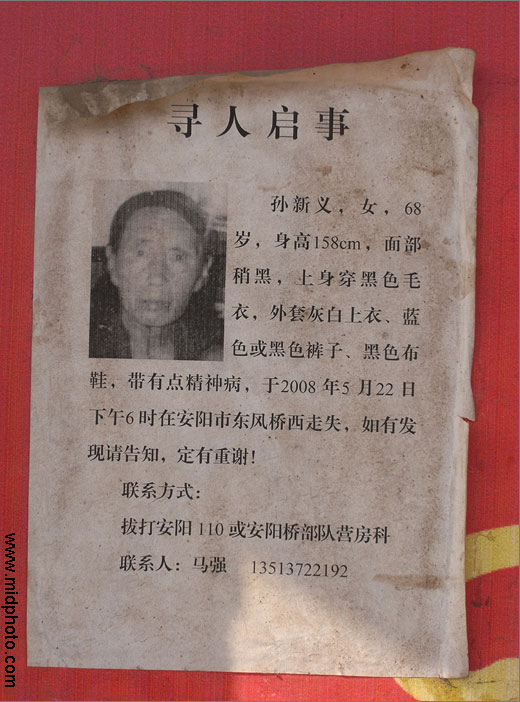 寻人启事
孙新义，女，68
岁，身高158cm，面部
稍黑，上身穿黑色毛
衣，外套灰白上衣、蓝
色或黑色裤子、黑色布
鞋，带有点精神病，于2008年5月22日
下午6时在安阳市东风桥西走失，如有发
现请告知，定有重谢！
联系方式：
拨打安阳110或安阳桥部队营房科
联系人：马强 13513722192
www.midphoto.com